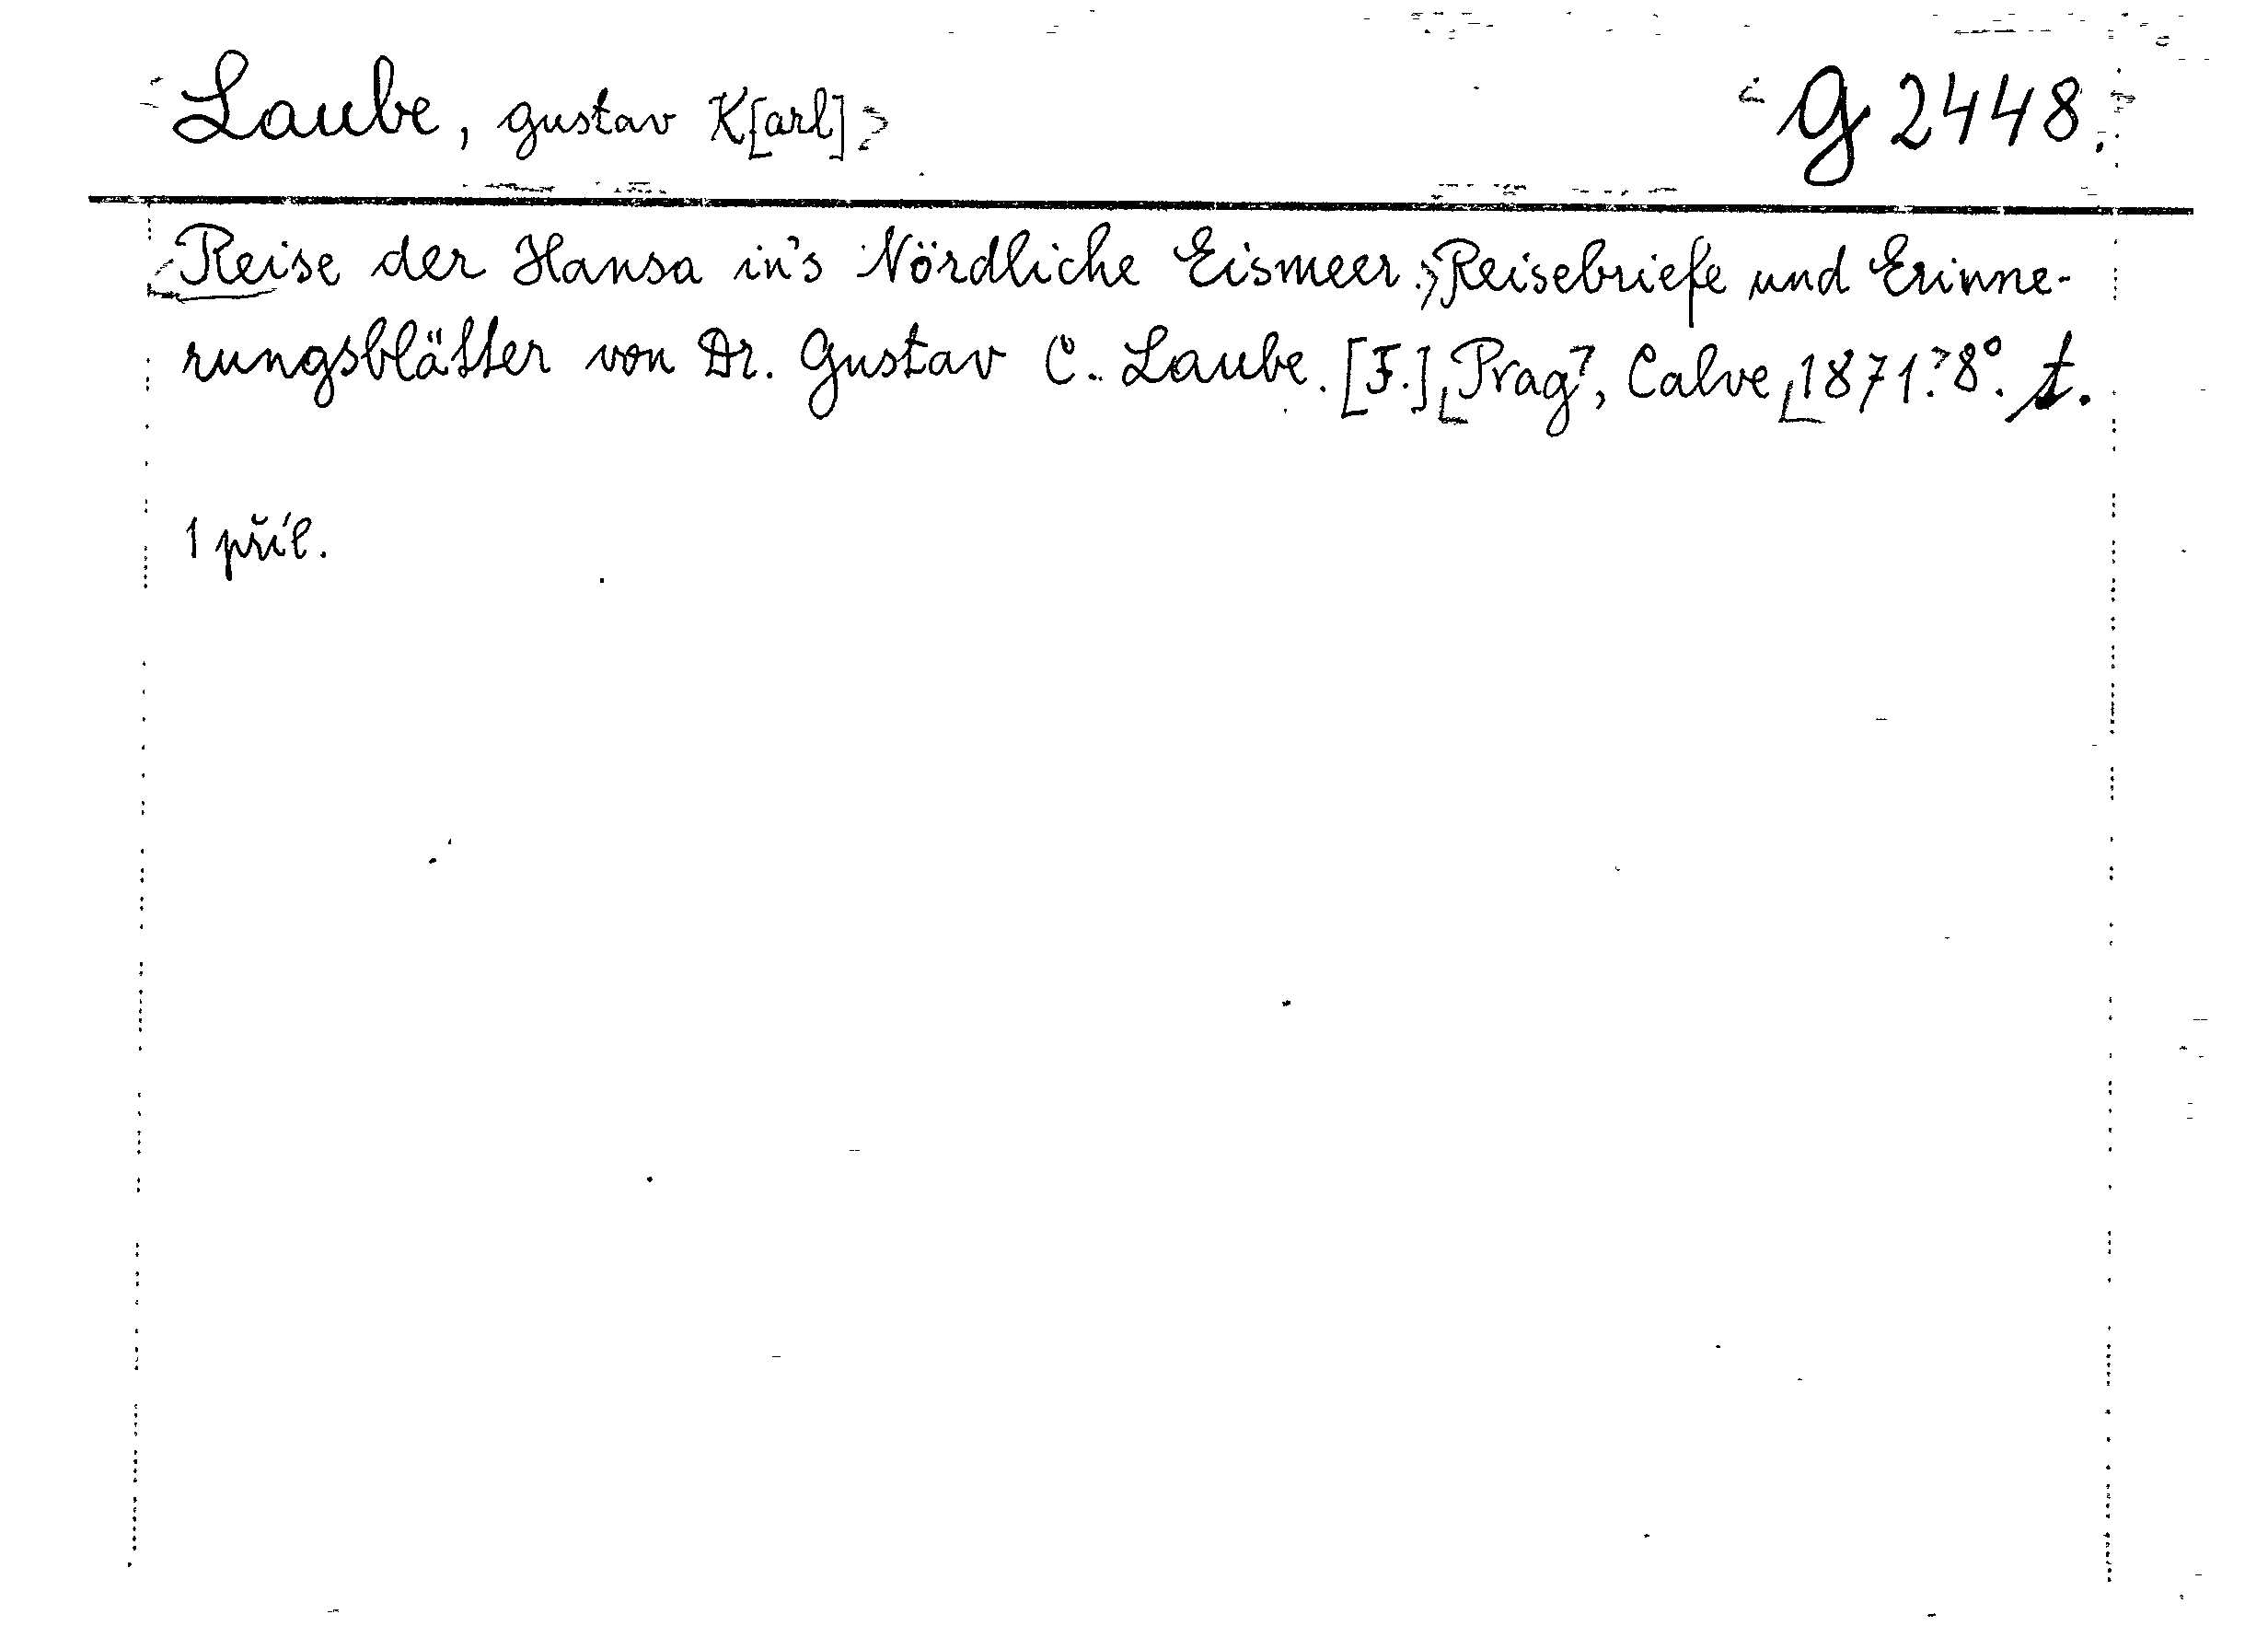 Laube, Gustav K[arl]
G 2448.
Reise der Hansa in's Nördliche Eismeer. Reisebriefe und Erinne-
rungsblätter von Dr. Gustav C. Laube. [F.] Prag, Calve 1871. 8°. t.
1 příl.